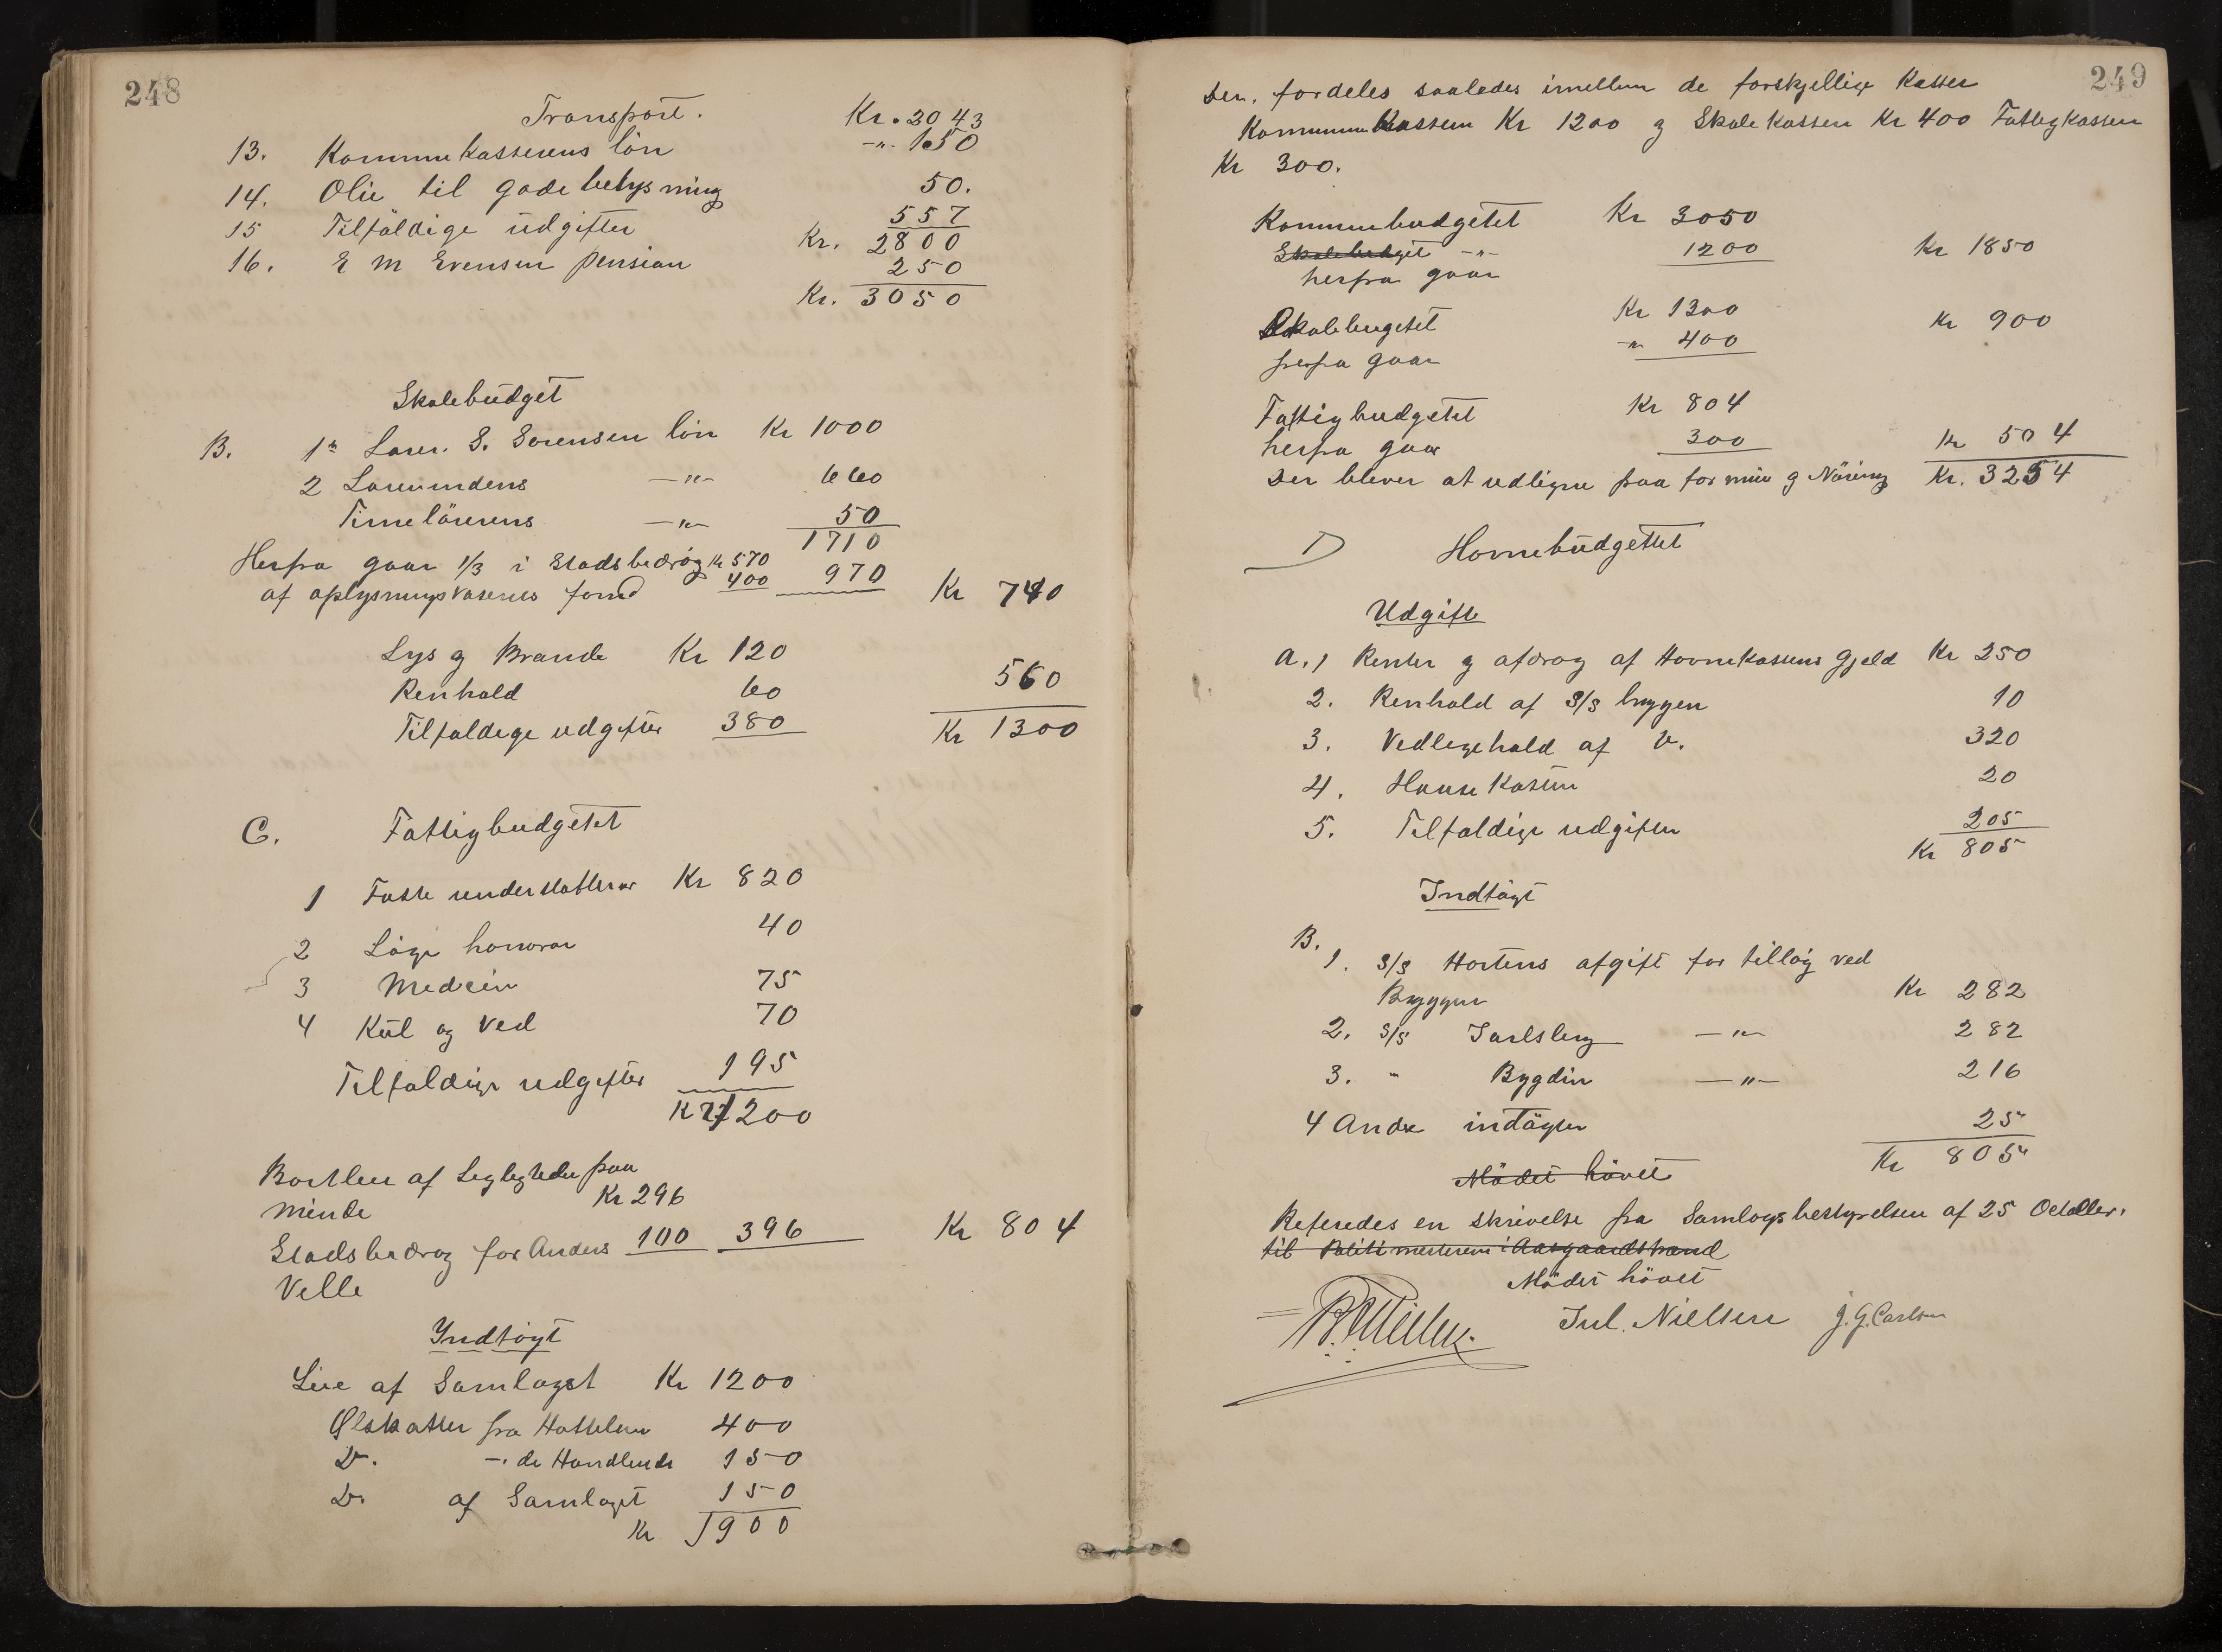 248
Transport. Kr. 2043
13. Kommunekasserens lön -"- 150
14. Olie til gadebelysning 50.
15 Tilfäldige udgifter 557
Kr. 2800
16. E M Evensen pension 250
Kr. 3050
Skolebudget
B. 1 Lärer. S. Sørensen lön Kr 1000
2 Lärerindens -"- 660
Timelärerens -"- 50
1710
Herfra gaar 1/3 i Stadsbedrag Kr 570
af oplysningsväsenets fond 400 970 Kr 740
Lys og Brände Kr 120
Renhold 60 560
Tilfäldige udgifter 380 Kr 1300
C. Fattigbudgetet
1 Faste understöttelser Kr 820
2 Läge honorar 40
3 Medicin 75
4 Kul og Ved 70
Tilfäldige udgifter 195
Kr 1200
Bortleie af Leyligheder paa
Minde Kr 296
Stadsbedrag for Anders 100 396 Kr 804
Velle
Indtägt
Leie af Samlaget Kr 1200
Ølskatter fra Hotteller 400
Do. -. de Handlende 150
Do. af Samlaget 150
Kr 1900
249
Der. fordeles saaledes imellem de forskjellige Kasser
Kommunekassen Kr 1200 og Skolekassen Kr 400 Fattigkassen
Kr 300.
Kommunebudgetet Kr 3050
Skolebudget -"- 1200 Kr 1850
herfra gaar
Skolebugetet Kr 1300 Kr 900
herfra gaar -"- 400
Fattigbudgetet Kr 804
herfra gaar 300 Kr 504
Der bliver at udligne paa formue og Näring Kr. 3254
D Havnebudgettet
Udgifte
A. 1 Renter og afdrag af Havnekassens Gjeld Kr 250
2. Renhold af S/S bryggen 10
3. Vedligehold af D. 320
4. 20
5. Tilfäldige udgifter 205
Kr 805
Indtägt
B.
1. S/S Hortens afgift for tilläg ved
Bryggen Kr 282
2. S/S Jarlsberg -"- 282
3. " Bygdin -"- 216
4 Andre indtägter 25
Kr 805
Mödet hävet
Refereredes en skrivelse fra Samlagsbestyrelsen af 25 October.
til Politimesteren i Aasgaardstrand
Mödet hävet
Jul. Nielsen J. G. Carlsen